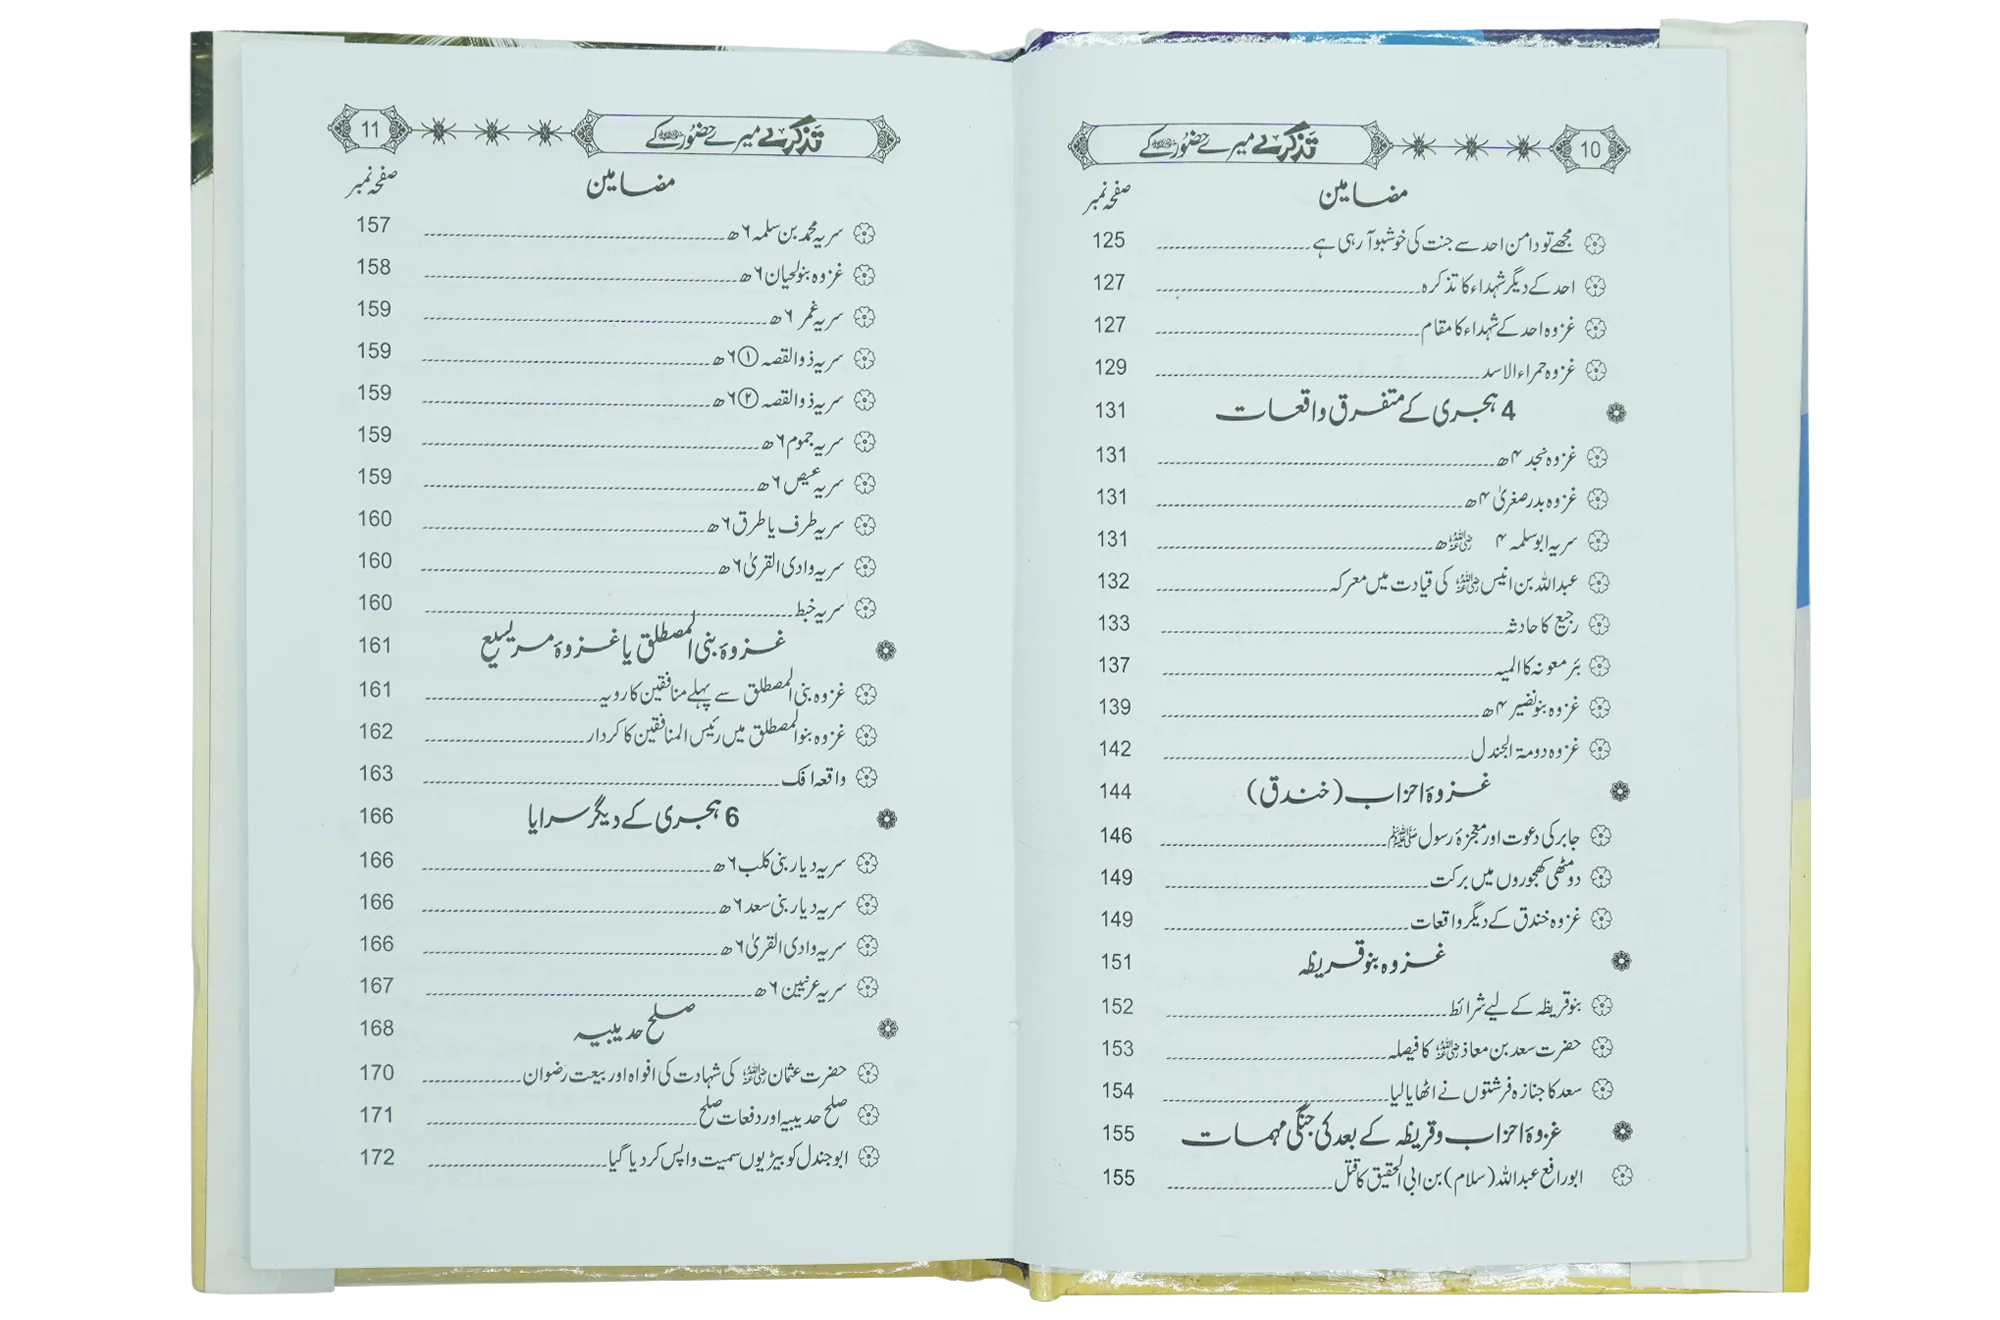 10 تذکرے میرے حضور ﷺ کے
مضامین صفحہ نمبر
مجھے تو دامن احد سے جنت کی خوشبو آ رہی ہے 125
احد کے دیگر شہداء کا تذکرہ 127
غزوہ احد کے شہداء کا مقام 127
غزوہ حمراء الاسد 129
4 ہجری کے متفرق واقعات 131
غزوہ نجد ۴ھ 131
غزوہ بدر صغریٰ ۴ھ 131
سریہ ابو سلمہ ۴ رضی اللہ عنہ ھ 131
عبداللہ بن انیس رضی اللہ عنہ کی قیادت میں معرکہ 132
رجیع کا حادثہ 133
بئر معونہ کا المیہ 137
غزوہ بنو نضیر ۴ھ 139
غزوہ دومۃ الجندل 142
غزوۂ احزاب (خندق) 144
جابر کی دعوت اور معجزۂ رسول ﷺ 146
دو مٹھی کھجوروں میں برکت 149
غزوہ خندق کے دیگر واقعات 149
غزوہ بنو قریظہ 151
بنو قریظہ کے لیے شرائط 152
حضرت سعد بن معاذ رضی اللہ عنہ کا فیصلہ 153
سعد کا جنازہ فرشتوں نے اٹھایا لیا 154
غزوۂ احزاب و قریظہ کے بعد کی جنگی مہمات 155
ابو رافع عبداللہ (سلام) بن ابی الحقیق کا قتل 155
تذکرے میرے حضور ﷺ کے 11
مضامین صفحہ نمبر
سریہ محمد بن سلمہ ۶ھ 157
غزوہ بنو لحیان ۶ھ 158
سریہ غمر ۶ھ 159
سریہ ذوالقصہ ① ۶ھ 159
سریہ ذوالقصہ ② ۶ھ 159
سریہ جموم ۶ھ 159
سریہ عیص ۶ھ 159
سریہ طرف یا طرق ۶ھ 160
سریہ وادی القریٰ ۶ھ 160
سریہ خبط 160
غزوۂ بنی المصطلق یا غزوۂ مریسیع 161
غزوہ بنی المصطلق سے پہلے منافقین کا رویہ 161
غزوہ بنو المصطلق میں رئیس المنافقین کا کردار 162
واقعہ افک 163
6 ہجری کے دیگر سرایا 166
سریہ دیار بنی کلب ۶ھ 166
سریہ دیار بنی سعد ۶ھ 166
سریہ وادی القریٰ ۶ھ 166
سریہ عرنیین ۶ھ 167
صلح حدیبیہ 168
حضرت عثمان رضی اللہ عنہ کی شہادت کی افواہ اور بیعت رضوان 170
صلح حدیبیہ اور دفعات صلح 171
ابو جندل کو بیڑیوں سمیت واپس کر دیا گیا 172